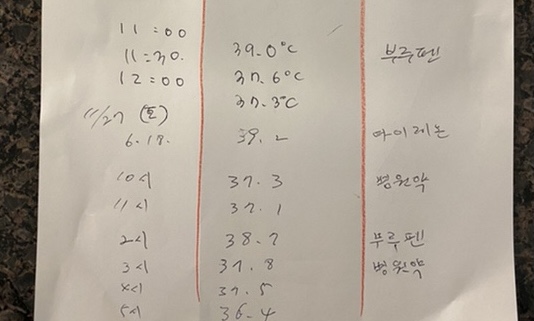 11:00 39.0°C 부루펜
11:30. 37.6°C
12:00 37.3°C
11/27 (토)
6.18. 39.2 아이레논
10시 37.3 병원약
11시 37.1
2시 38.7 부루펜
3시 37.8 병원약
4시 37.5
5시 36.4